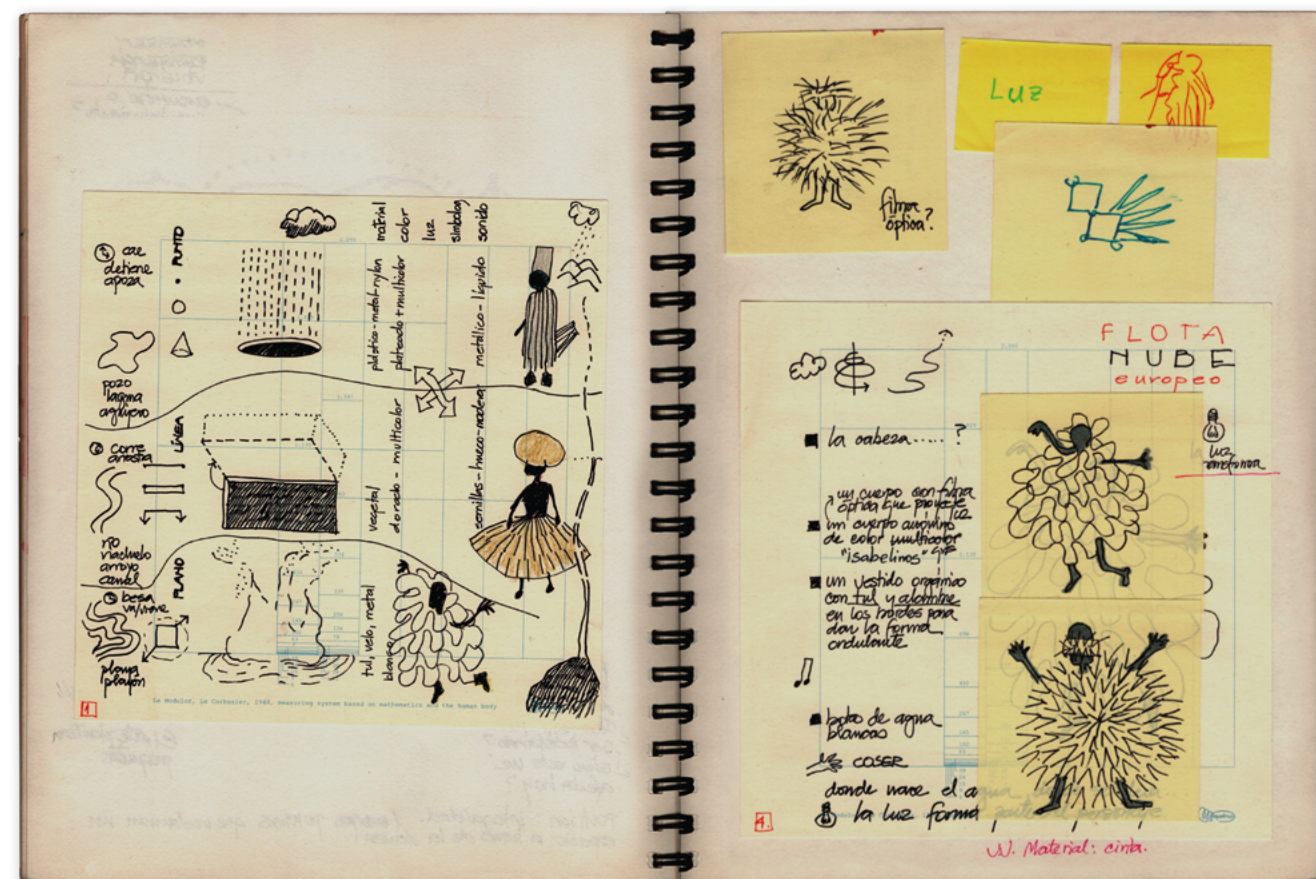 cae
detiene
apoza
PUNTO
pozo
laguna
agujero
corre
arrastra
LÍNEA
río
riachuelo
arroyo
canal
PLANO
besa
va/viene
playa
playón
material
color
luz
símbolos
sonido
plástico-metal-nylon
plateado + multicolor
metálico-líquido
vegetal
dorado - multicolor
semillas-hueco-madera
tul, velo, metal
blanco
1
Le Modulor, Le Corbusier, 1948, measuring system based on mathematics and the human body
fibra
óptica?
Luz
FLOTA
NUBE
europeo
luz
la cabeza.....?
un cuerpo con fibra
óptica que proyecte
luz
un cuerpo anónimo
de color multicolor
"isabelinos"
un vestido orgánico
con tul y alambre
en los bordes para
dar la forma
ondulante
botas de agua
blancas
COSER
donde nace el a
la luz forma
4.
Material: cinta.